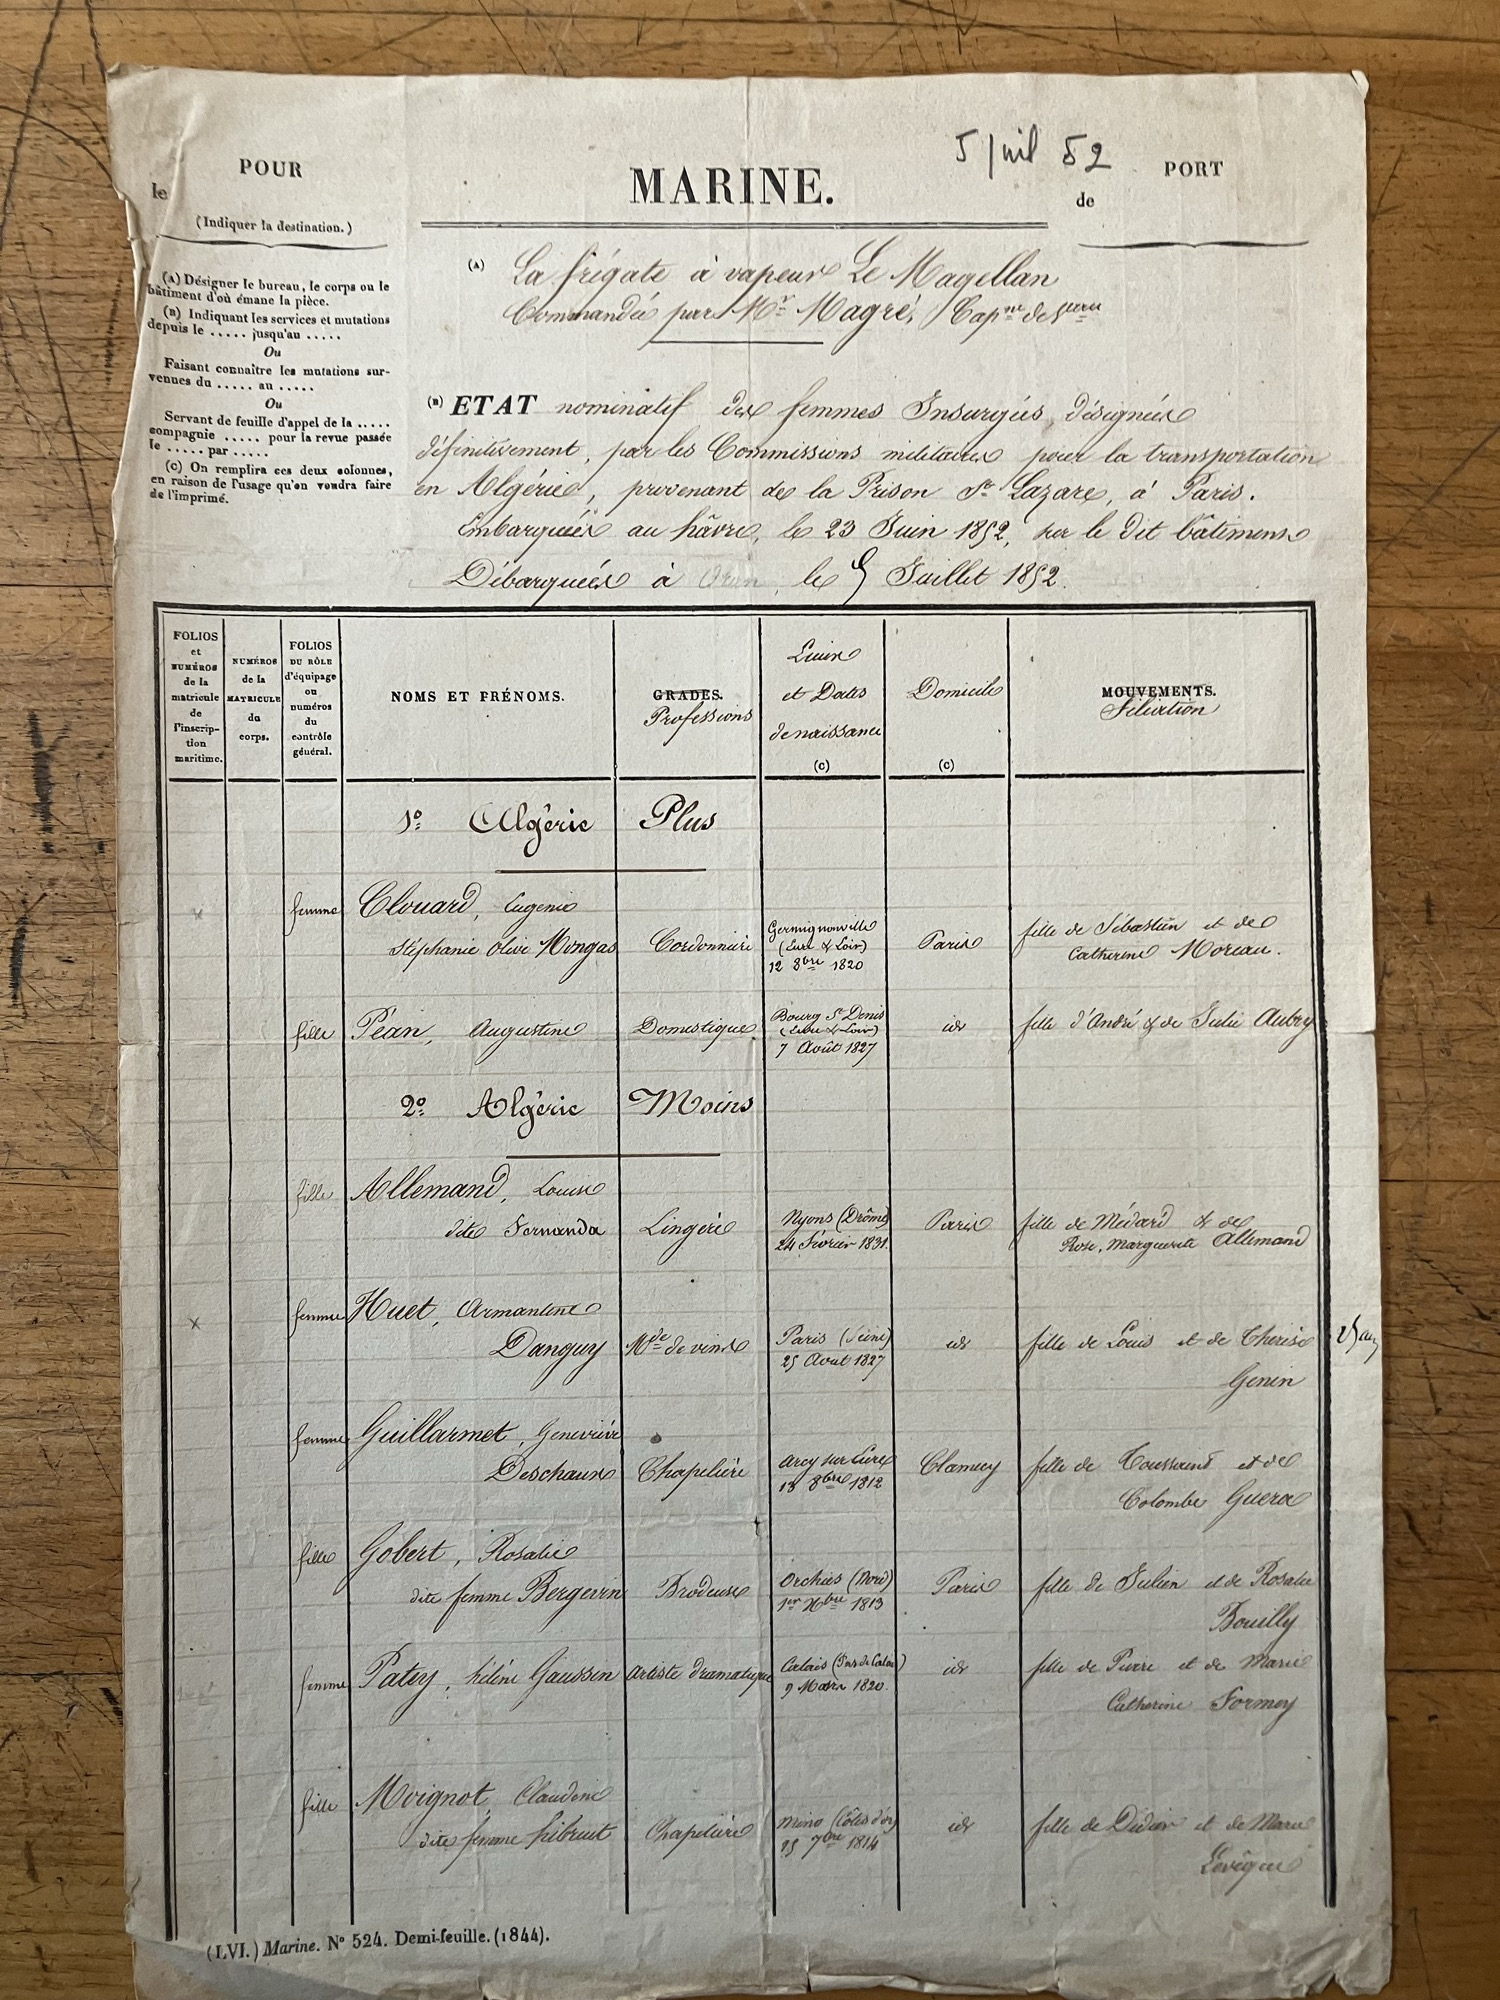 5 Juil 52
POUR
le
(Indiquer la destination.)
MARINE.
PORT
de
(A) Désigner le bureau, le corps ou le
bâtiment d'où émane la pièce.
(B) Indiquant les services et mutations
depuis le ..... jusqu'au .....
Ou
Faisant connaître les mutations sur-
venues du ..... au .....
Ou
Servant de feuille d'appel de la .....
compagnie ..... pour la revue passée
le ..... par .....
(C) On remplira ces deux colonnes,
en raison de l'usage qu'on voudra faire
de l'imprimé.
(A) La frégate à vapeur Le Magellan
Commandée par Mr Magré, Capne de
(B) ETAT nominatif des femmes Insurgées, désignées
définitivement, par les Commissions militaires pour la transportation
en Algérie, provenant de la Prison St Lazare, à Paris.
Embarquées au hâvre, le 23 Juin 1852, sur le dit bâtiment
Débarquées à Oran, le 5 Juillet 1852.
FOLIOS
et
NUMÉROS
de la
matricule
de
l'inscrip-
tion
maritime.
NUMÉROS
de la
MATRICULE
du
corps.
FOLIOS
DU RÔLE
d'équipage
ou
numéros
du
contrôle
général.
NOMS ET PRÉNOMS.
GRADES.
Professions
Lieux
et Dates
de naissance
(C)
Domicile
(C)
MOUVEMENTS.
Filiation
1o Algérie Plus
femme Clouard, Eugenie
Stéphanie Olive Mongas Cordonnière Germignonville
(Eure & Loir)
12 8bre 1820 Paris fille de Sébastien et de
Catherine Moreau.
fille Péan, Augustine Domestique Bourg St Denis
(Eure & Loir)
7 Août 1827 id fille d'André & de Julie Aubry
2o Algérie Moins
fille Allemand, Louise
dite Fernanda Lingère Nyons (Drôme)
24 Février 1831. Paris fille de Médard & de
Rose, Marguerite Allemand
x femme Huet, Armantine
Danguy Mde de vins Paris (Seine)
25 Aout 1827 id fille de Louis et de Therèse
Genin
25 ans
femme Guillarmet, Geneviève
Deschaux Chapelière Arcy sur Cure
18 8bre 1812 Clamecy fille de Toussaint et de
Colombe
fille Gobert, Rosalie
dite femme Bergevin Brodeuse Orchies (Nord)
1er Xbre 1813 Paris fille de Julien et de Rosalie
Bouilly
femme Patey, hélène Gaussin Artiste dramatique Calais (Pas de Calais)
9 Mars 1820. id fille de Pierre et de Marie
Catherine Formey
fille Moignot, Claudine
dite femme hibruit Chapelière Minot (Côtes d'or)
25 7bre 1814 id fille de Didier et de Marie
Levêque
(LVI.) Marine. No 524. Demi-feuille. (1844).